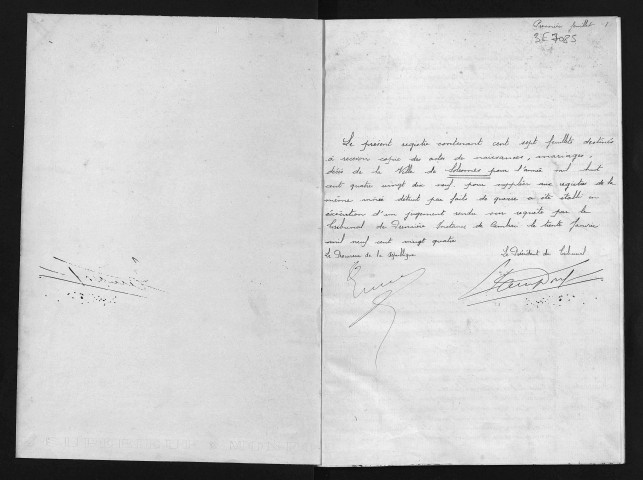 Premier feuillet 1
3E 7085
Le présent registre contenant cent sept feuillets destinés
à recevoir copie des actes de naissances, mariages,
décès de la Ville de Solesmes pour l'année mil huit
cent quatre vingt dix neuf pour suppléer aux registres de la
même année détruit par faits de guerre a été établi en
exécution d'un jugement rendu sur requête par le
Tribunal de Première Instance de Cambrai le trente Janvier
mil neuf cent vingt quatre
Le Procureur de la République
Le Président du Tribunal